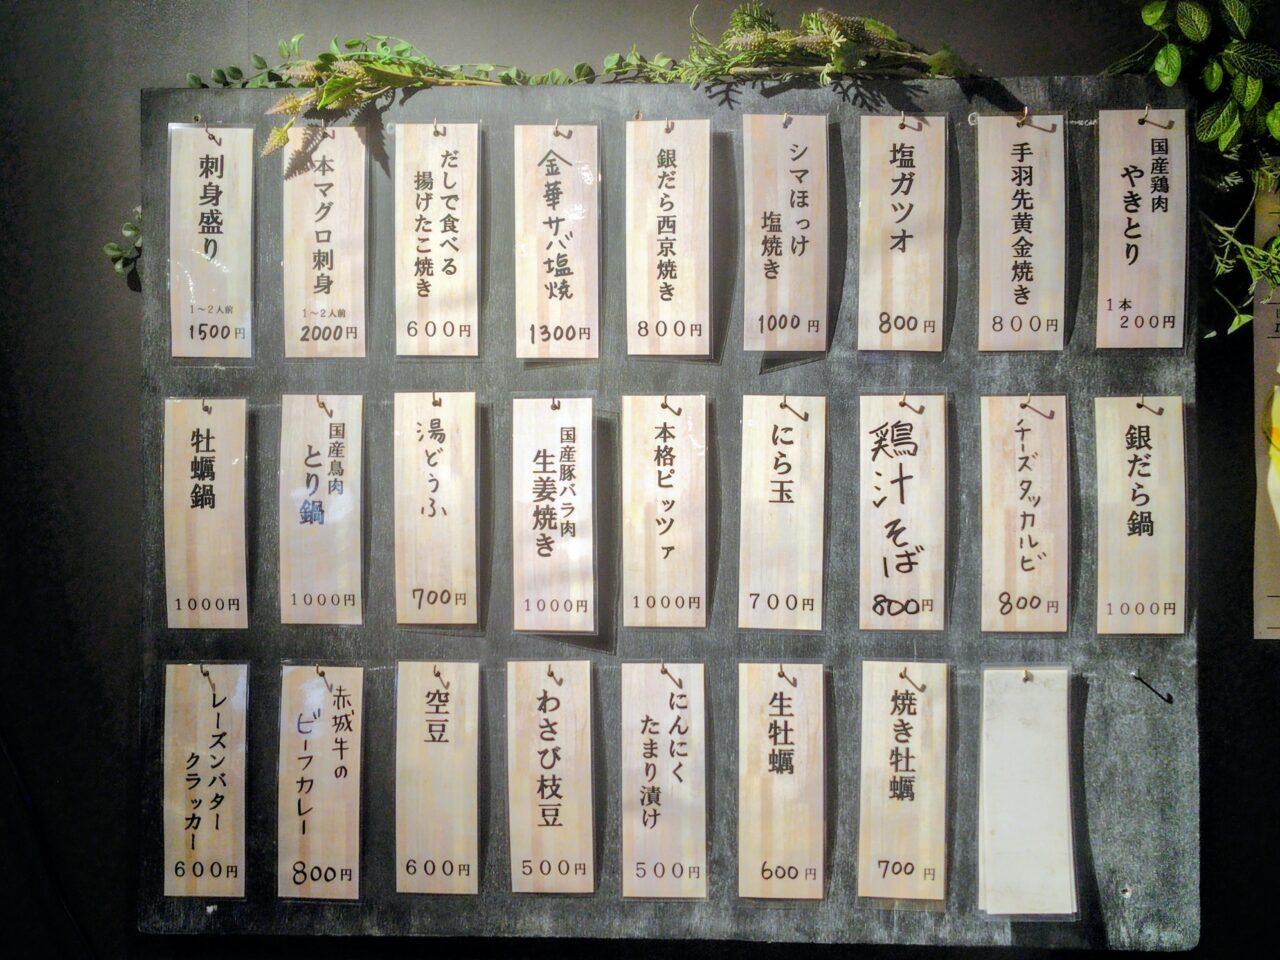 国産鶏肉
やきとり
1本
200円
手羽先黄金焼き
800円
塩ガツオ
800円
シマほっけ
塩焼き
1000円
銀だら西京焼き
800円
金華サバ塩焼
1300円
だしで食べる
揚げたこ焼き
600円
本マグロ刺身
1〜2人前
2000円
刺身盛り
1〜2人前
1500円
銀だら鍋
1000円
チーズタッカルビ
800円
鶏汁そば
800円
にら玉
700円
本格ピッツァ
1000円
国産豚バラ肉
生姜焼き
1000円
湯どうふ
700円
国産鳥肉
とり鍋
1000円
牡蠣鍋
1000円
焼き牡蠣
700円
生牡蠣
600円
にんにく
たまり漬け
500円
わさび枝豆
500円
空豆
600円
赤城牛の
ビーフカレー
800円
レーズンバター
クラッカー
600円